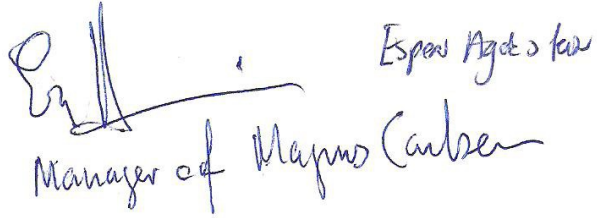 Espen Agdestein
Manager of Magnus Carlsen